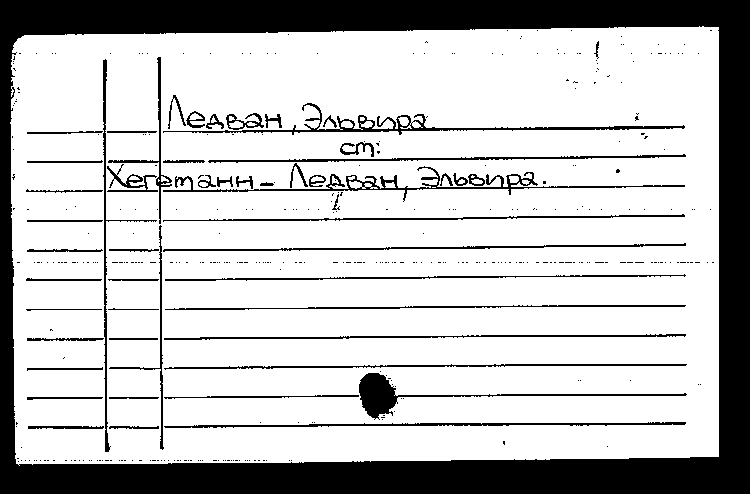 Ледван, Эльвира
ст:
Хегеманн – Ледван, Эльвира.